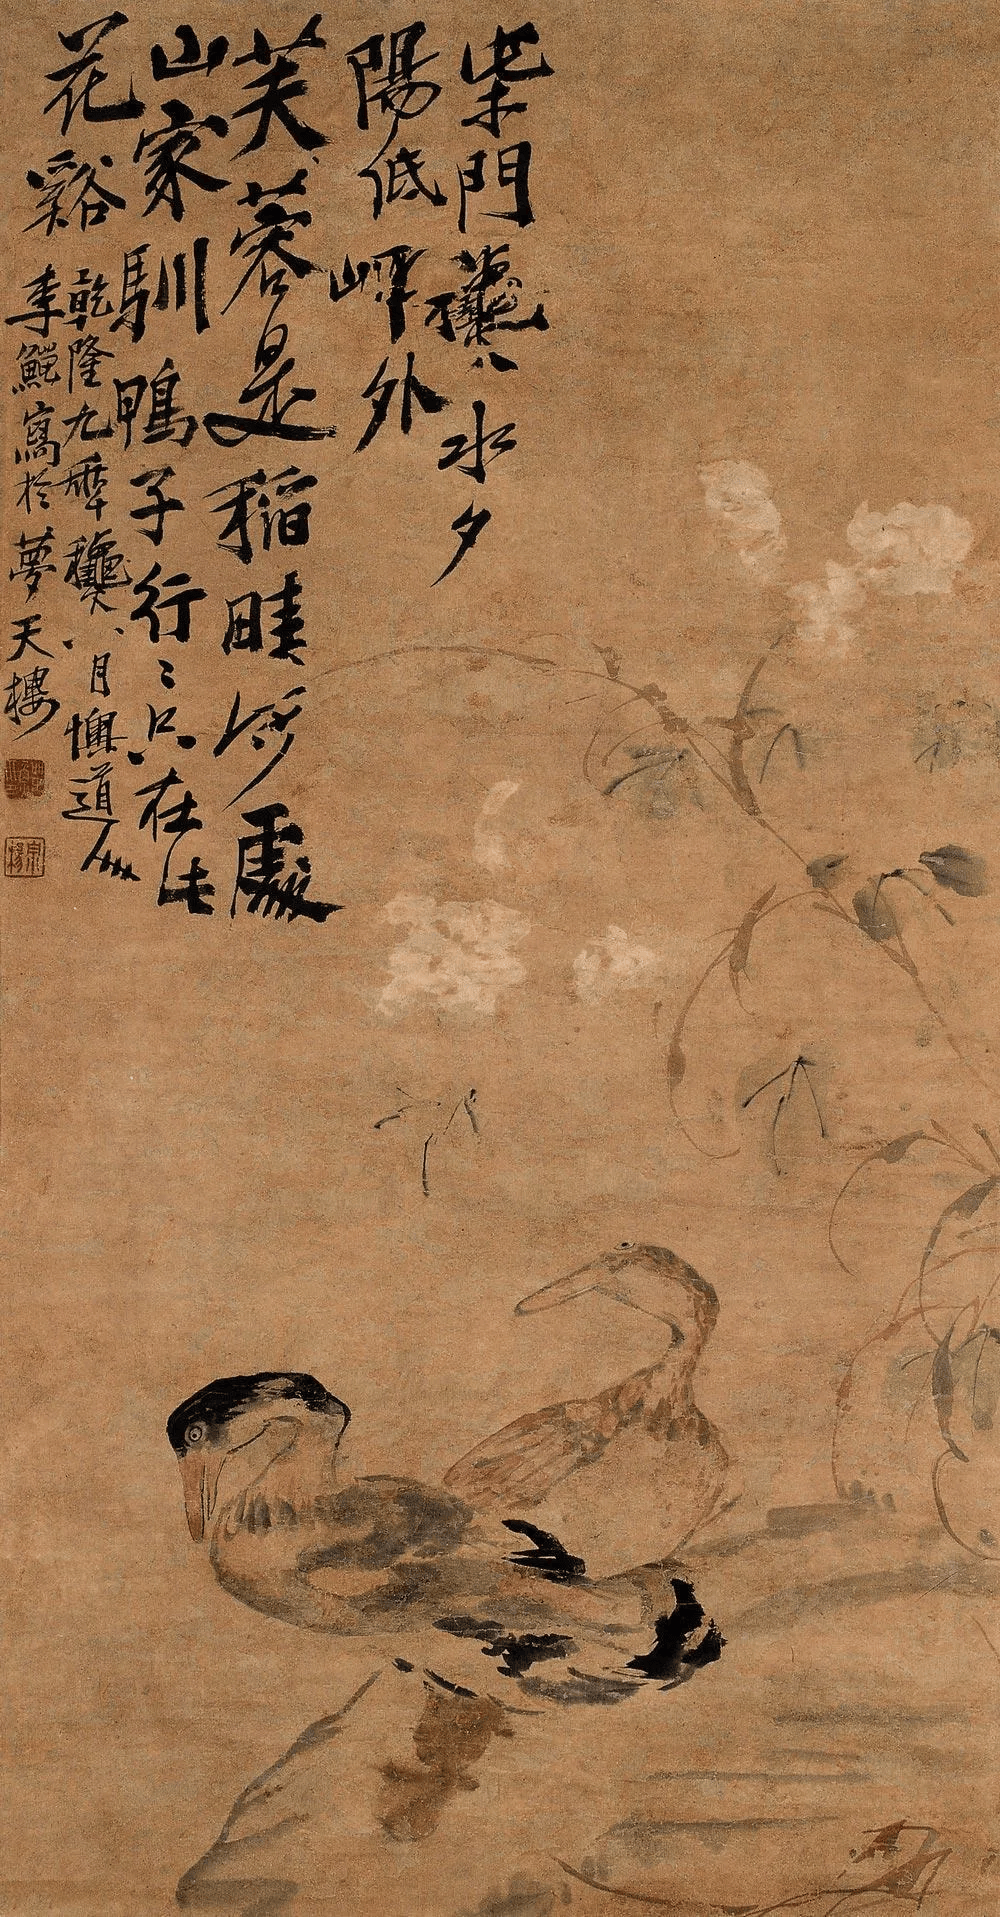 柴門龝水夕
陽低岸外
芙蓉是稻畦何處
山家馴鴨子行〻只在此
花谿
乾隆九秊龝八月懊道人
李鱓寫於夢天樓